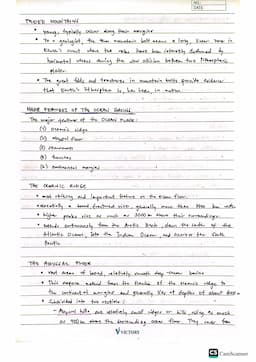 NO.:
DATE:
FOLDED MOUNTAINS
• young, typically occur along plate margins
• To a geologist, the term mountain belt means a long, linear zone in
Earth's crust where the rocks have been intensely deformed by
horizontal stress during the slow collision between two lithospheric
plates.
• The great folds and fractures in mountain belts provide evidence
that Earth's lithosphere is, has been in motion.
MAJOR FEATURES OF THE OCEAN
The major features of the OCEAN FLOOR:
(1) oceanic ridge
(2) abyssal floor
(3) seamounts
(4) trenches
(5) continental margins
THE OCEANIC RIDGE
• most striking and important feature on the ocean floor.
• essentially a broad, fractured rise, generally more than 1400 km wide.
• higher peaks rise as much as 3000 m above their surroundings.
• extends continuously from the Arctic Basin, down the center of the
Atlantic Ocean, into the Indian Ocean, and across the South
Pacific
THE ABYSSAL FLOOR
• Vast areas of broad, relatively smooth deep-ocean basins
• This region extends from the flanks of the oceanic ridge to
the continental margins and generally lies at depths of about 4000 m
• Subdivided into two sections:
- Abyssal hills are relatively small ridges or hills, rising as much
as 900 m above the surrounding ocean floor. They cover from
VICTORY
CS CamScanner